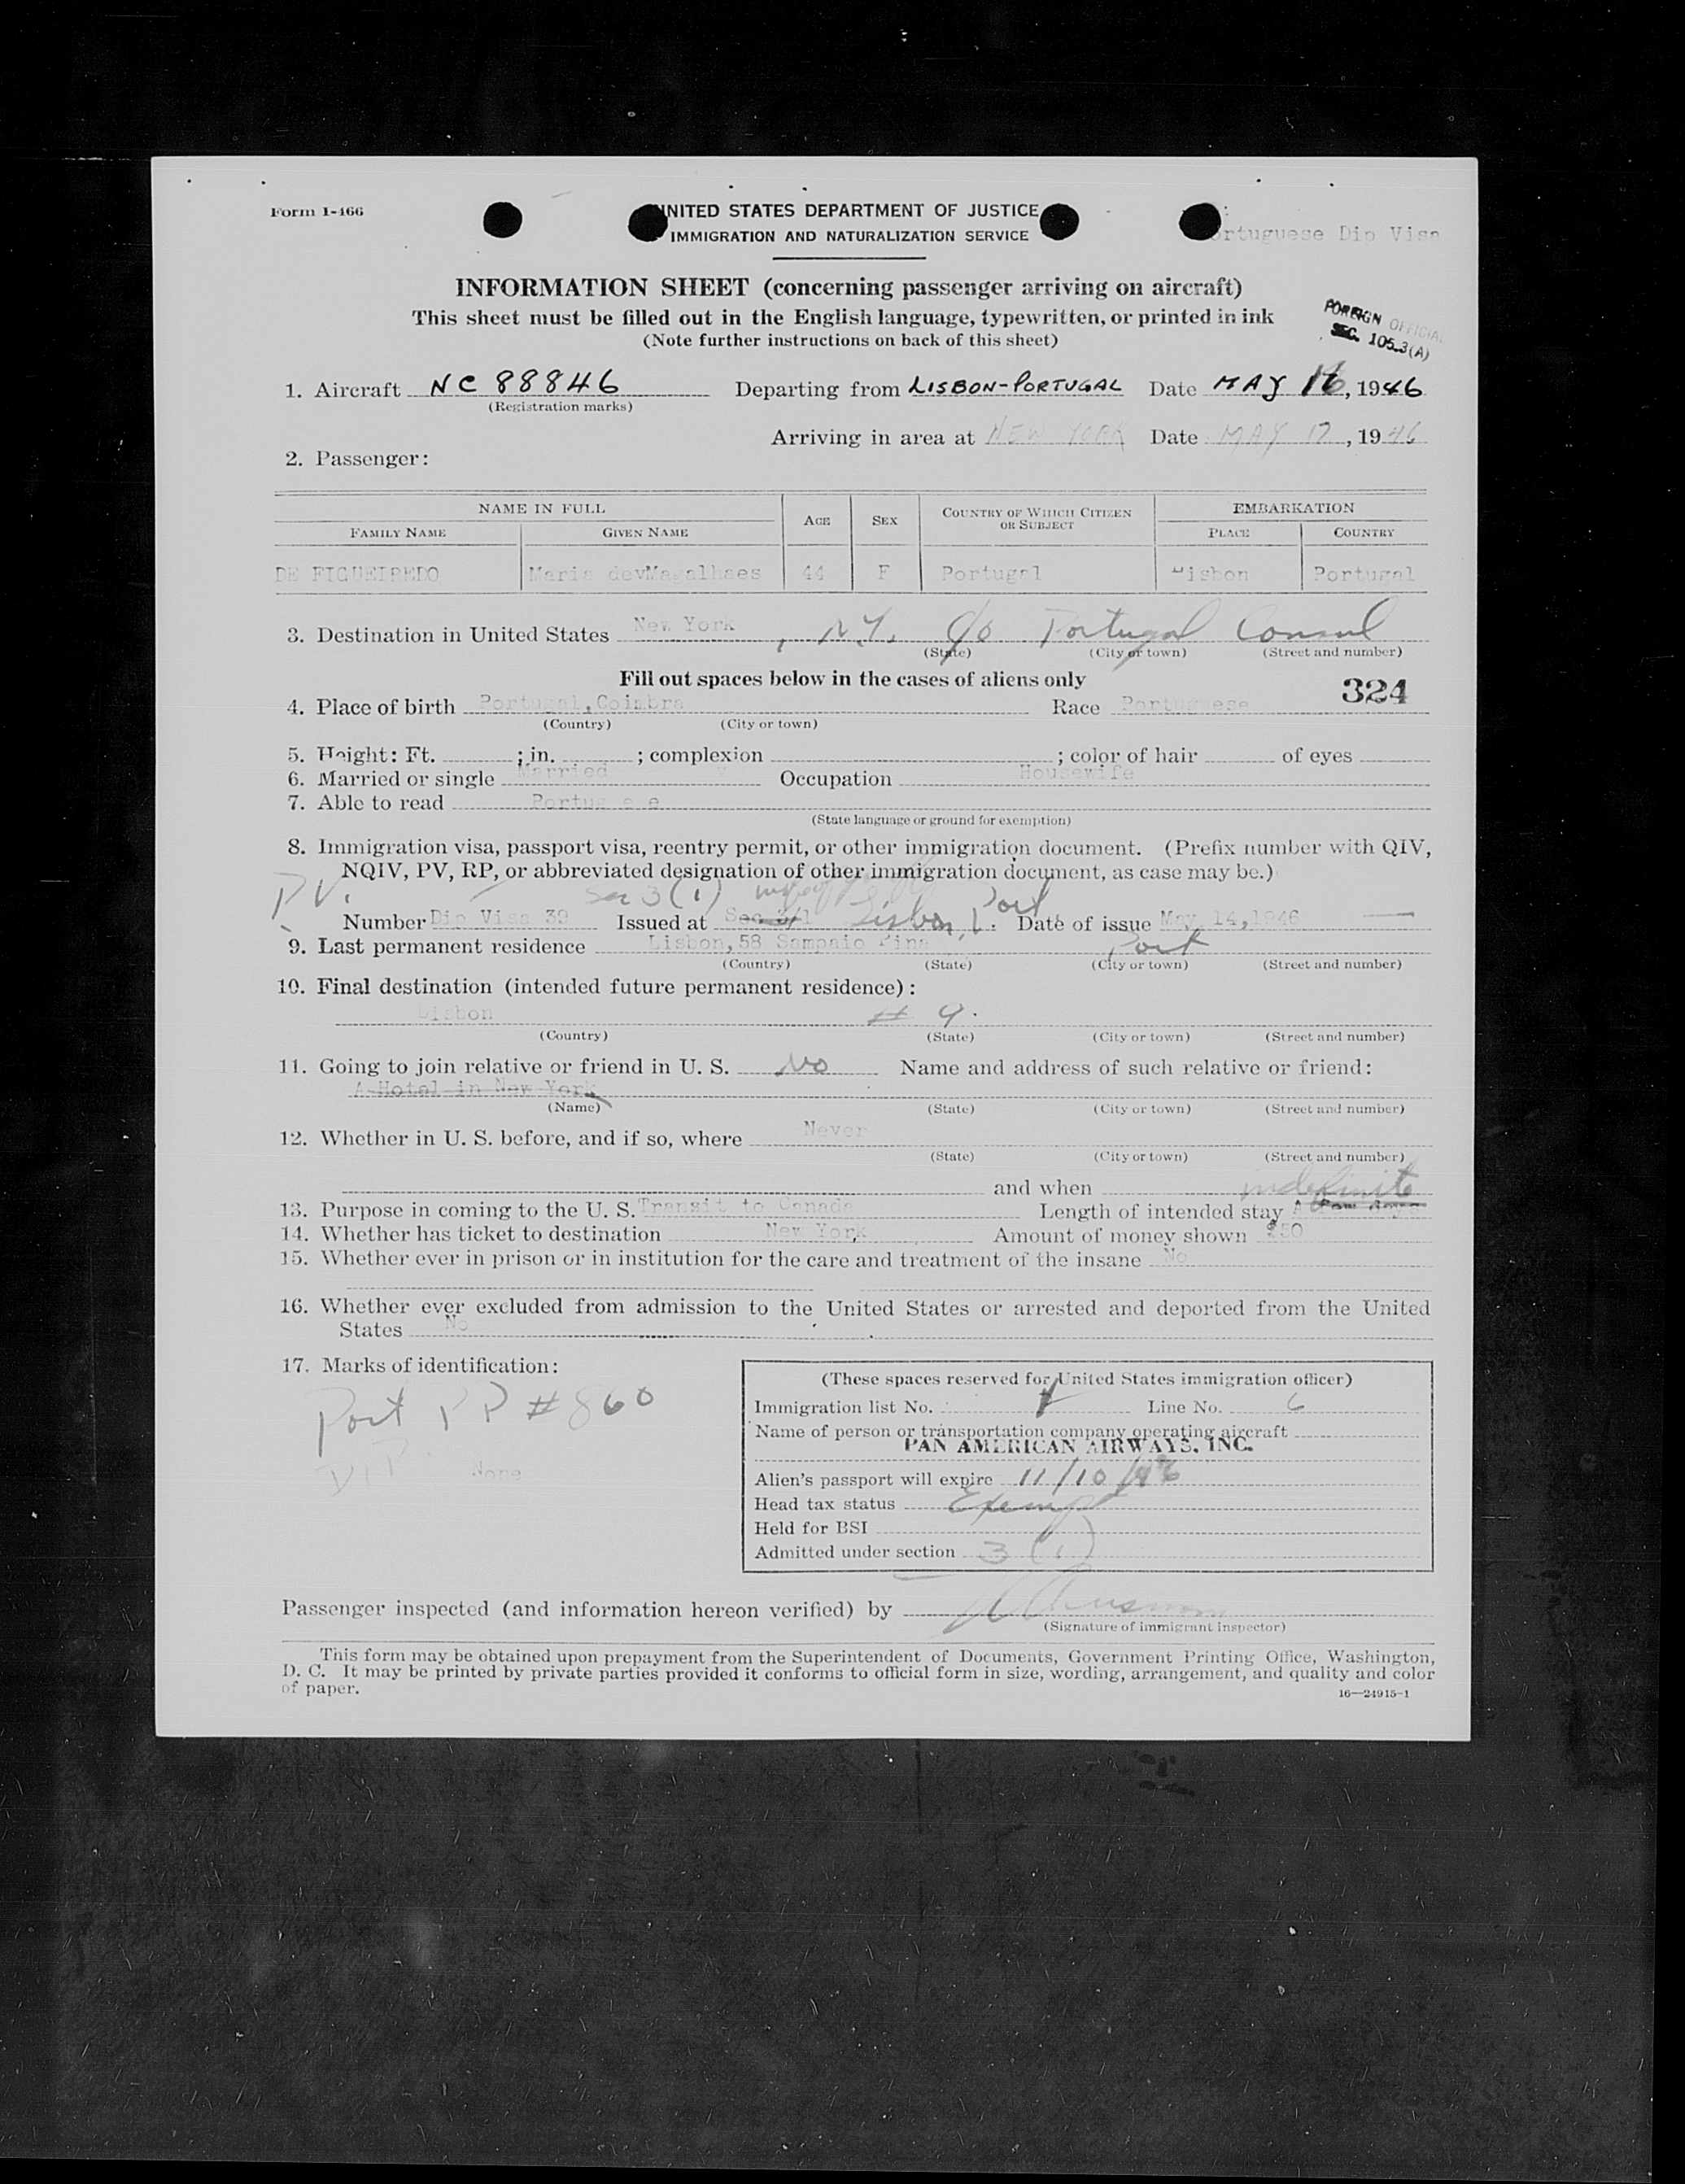 Form I-466
UNITED STATES DEPARTMENT OF JUSTICE
IMMIGRATION AND NATURALIZATION SERVICE
ortuguese Dip Visa
INFORMATION SHEET (concerning passenger arriving on aircraft)
This sheet must be filled out in the English language, typewritten, or printed in ink
(Note further instructions on back of this sheet)
FOREIGN OFFICIAL
SEC. 105.3(A)
1. Aircraft NC 88846 Departing from LISBON-PORTUGAL Date MAY 16, 1946
(Registration marks)
Arriving in area at NEW YORK Date MAY 17, 1946
2. Passenger:
NAME IN FULL AGE SEX COUNTRY OF WHICH CITIZEN OR SUBJECT EMBARKATION
FAMILY NAME GIVEN NAME PLACE COUNTRY
DE FIGUEIREDO Maria devMagalhaes 44 F Portugal Lisbon Portugal
3. Destination in United States New York, N.Y. c/o Portugal Consul
(State) (City or town) (Street and number)
Fill out spaces below in the cases of aliens only
324
4. Place of birth Portugal, Coimbra Race Portuguese
(Country) (City or town)
5. Height: Ft. ; in. ; complexion ; color of hair of eyes
6. Married or single Married Occupation Housewife
7. Able to read Portuguese
(State language or ground for exemption)
8. Immigration visa, passport visa, reentry permit, or other immigration document. (Prefix number with QIV,
NQIV, PV, RP, or abbreviated designation of other immigration document, as case may be.)
PV. Sec 3(1)
Number Dip Visa 39 Issued at Sec 3/1 Lisbon, Port Date of issue May 14, 1946
9. Last permanent residence Lisbon, 58 Sampaio Pina Port
(Country) (State) (City or town) (Street and number)
10. Final destination (intended future permanent residence):
Lisbon # 9.
(Country) (State) (City or town) (Street and number)
11. Going to join relative or friend in U. S. No Name and address of such relative or friend:
A Hotel in New York
(Name) (State) (City or town) (Street and number)
12. Whether in U. S. before, and if so, where Never
(State) (City or town) (Street and number)
and when
indefinite
13. Purpose in coming to the U. S. Transit to Canada Length of intended stay
14. Whether has ticket to destination New York Amount of money shown $50
15. Whether ever in prison or in institution for the care and treatment of the insane No
16. Whether ever excluded from admission to the United States or arrested and deported from the United
States No
17. Marks of identification:
Port PP # 860
DIP.
None
(These spaces reserved for United States immigration officer)
Immigration list No. Line No. 6
Name of person or transportation company operating aircraft
PAN AMERICAN AIRWAYS, INC.
Alien's passport will expire 11/10/46
Head tax status Exempt
Held for BSI
Admitted under section 3 (1)
Passenger inspected (and information hereon verified) by
(Signature of immigrant inspector)
This form may be obtained upon prepayment from the Superintendent of Documents, Government Printing Office, Washington,
D. C. It may be printed by private parties provided it conforms to official form in size, wording, arrangement, and quality and color
of paper.
16—24915-1